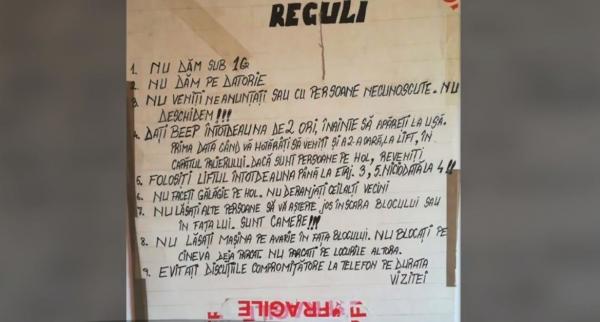 REGULI
1. NU DĂM SUB 1G
2. NU DĂM PE DATORIE
3. NU VENITI NEANUNȚAȚI SAU CU PERSOANE NECUNOSCUTE. NU
DESCHIDEM !!!
4. DAȚI BEEP ÎNTOTDEAUNA DE 2 ORI, ÎNAINTE SĂ APĂREȚI LA UȘĂ.
PRIMA DATĂ CÂND VĂ HOTĂRÂȚI SĂ VENITI ȘI A 2-A OARĂ, LA LIFT, ÎN
CAPĂTUL PALIERULUI. DACĂ SUNT PERSOANE PE HOL, REVENIȚI
5. FOLOSIȚI LIFTUL ÎNTOTDEAUNA PÂNĂ LA ETAJ. 3, 5. NICIODATĂ LA 4 !!
6. NU FACEȚI GĂLĂGIE PE HOL. NU DERANJAȚI CEILALȚI VECINI
7. NU LĂSAȚI ALTE PERSOANE SĂ VĂ AȘTEPTE JOS ÎN SCARA BLOCULUI SAU
IN FAȚA LUI. SUNT CAMERE !!!
8. NU LĂSAȚI MAȘINA PE AVARIE ÎN FAȚA BLOCULUI. NU BLOCAȚI PE
CINEVA DEJA PARCAT. NU PARCAȚI PE LOCURILE ALTORA.
9. EVITAȚI DISCUȚIILE COMPROMIȚĂTOARE LA TELEFON PE DURATA
VIZITEI
FRAGILE